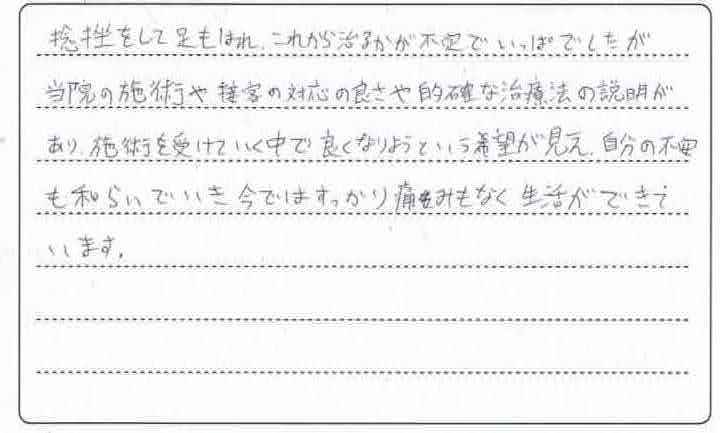 捻挫をして足もはれ、これから治るかが不安でいっぱでしたが
当院の施術や接客の対応の良さや的確な治療法の説明が
あり、施術を受けていく中で良くなりようという希望が見え、自分の不安
も和らいでいき今ではすっかり痛みもなく生活ができて
います。